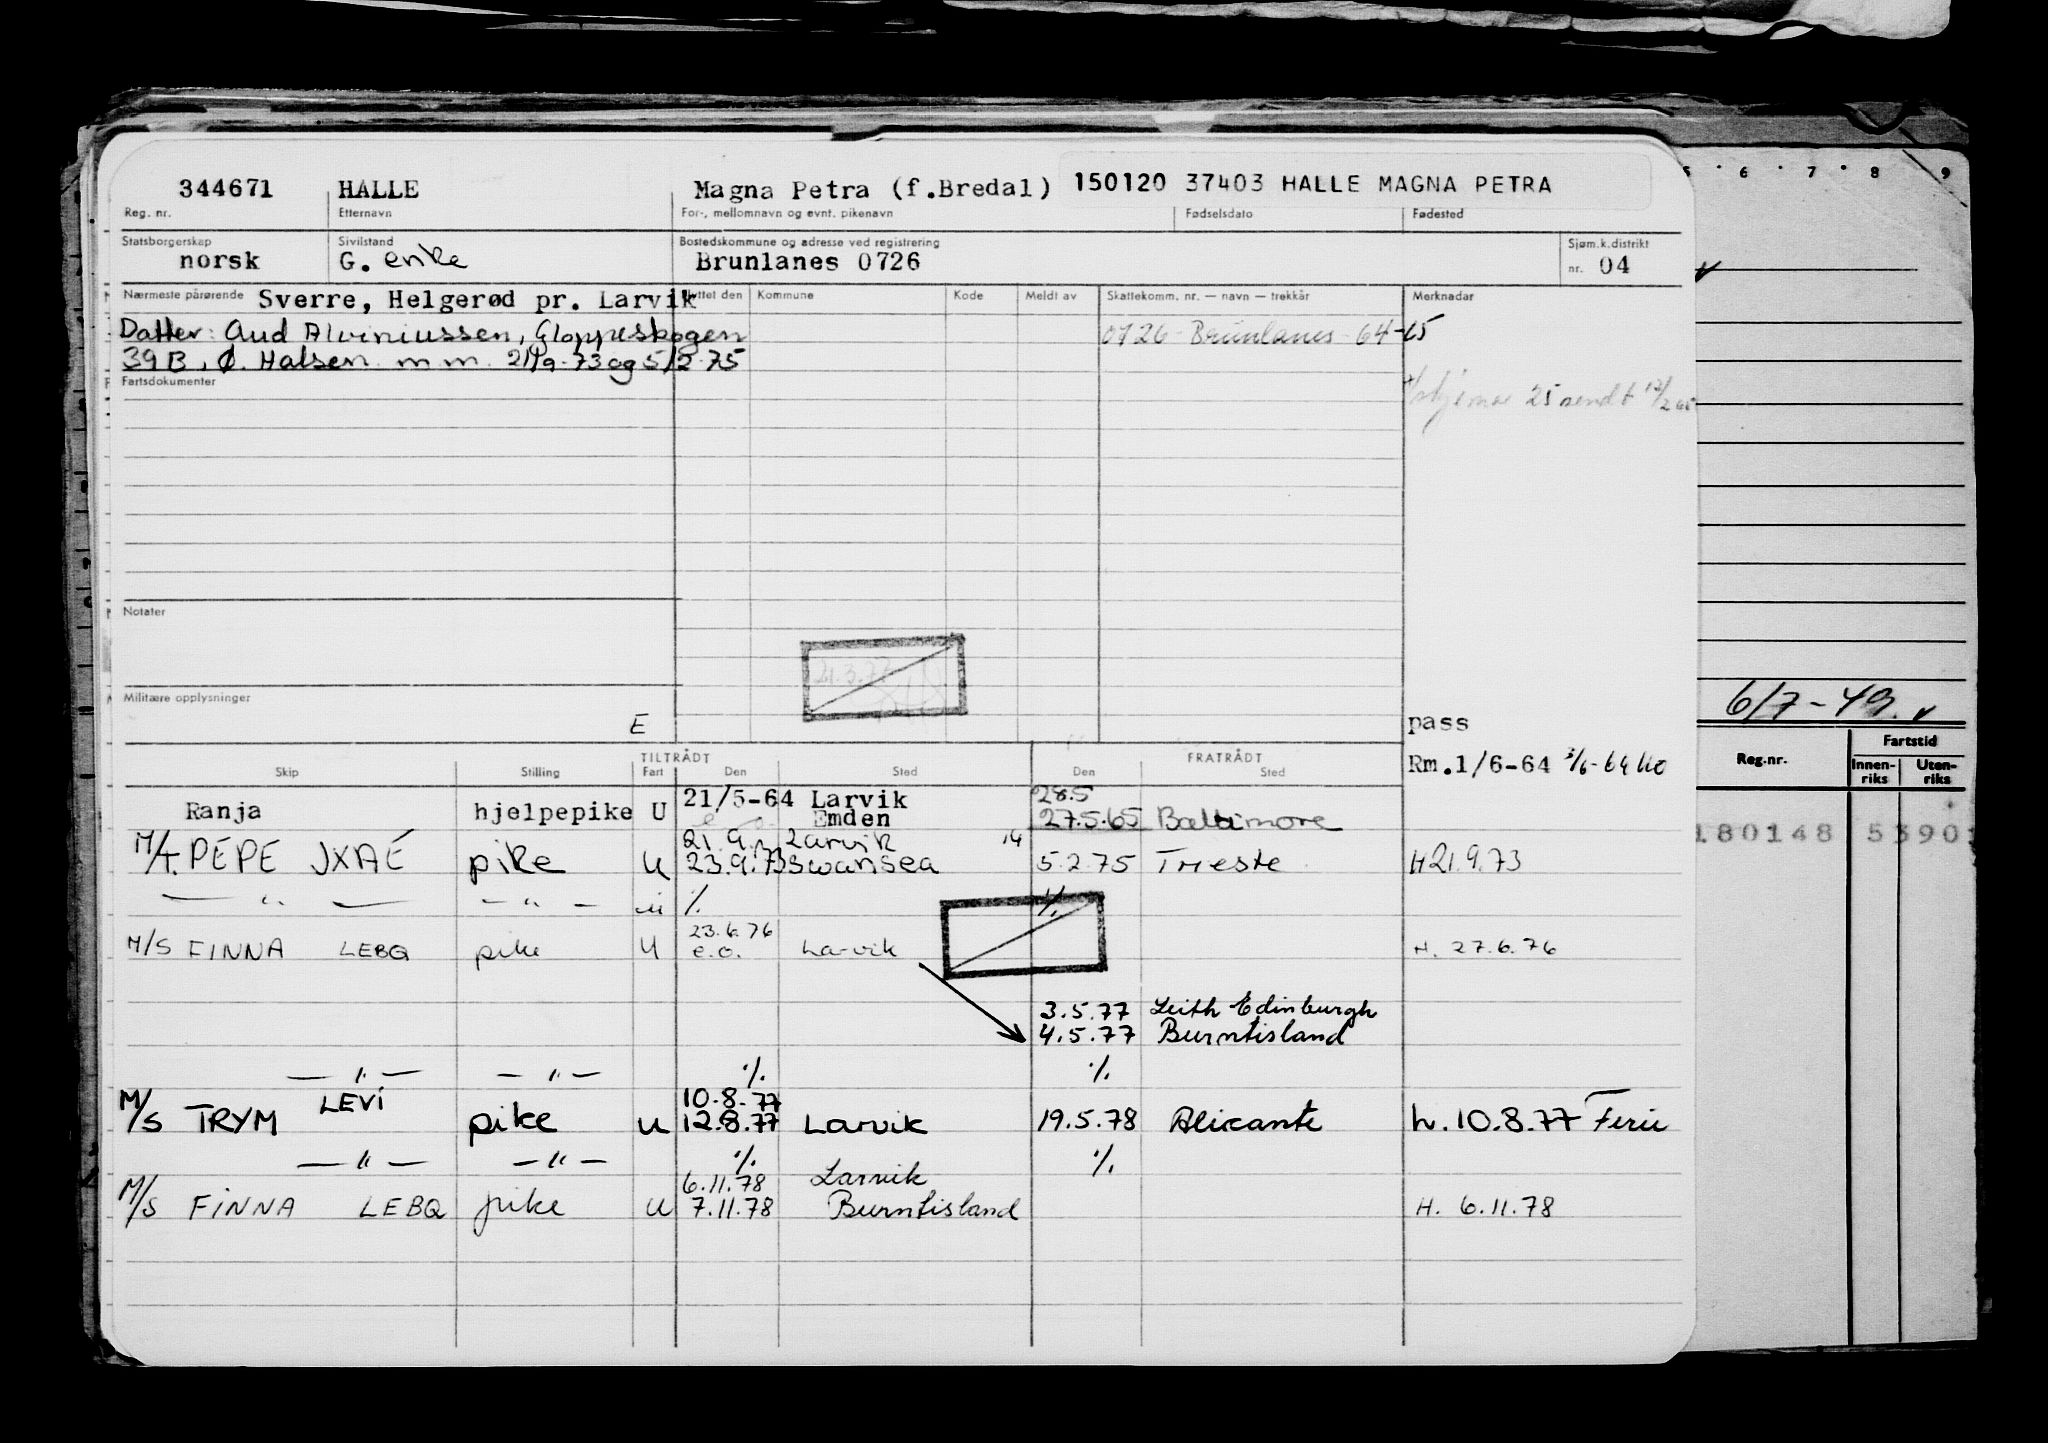 344671 HALLE Magna Petra (f.Bredal) 150120 37403 HALLE MAGNA PETRA
Reg. nr. Etternavn For-, mellomnavn og evnt. pikenavn Fødselsdato Fødested
Statsborgerskap Sivilstand Bostedskommune og adresse ved registrering Sjøm.k.distrikt
norsk G. enke Brunlanes 0726 nr. 04
Nærmeste pårørende Sverre, Helgerød pr. Larvik Flyttet den Kommune Kode Meldt av Skattekomm. nr. — navn — trekkår Merknader
Datter: Aud Alviniussen, Gloppeskogen 0726 Brunlanes 64-65
39B, Ø. Halsen m m. 21/9-73 og 5/2-75
Fartsdokumenter
skjema 25 sendt
Notater
21.3.77
Militære opplysninger
E
pass
Rm.1/6-64
TILTRÅDT FRATRÅDT
Skip Stilling Fart Den Sted Den Sted
Ranja hjelpepike U 21/5-64 Larvik 28.5
Emden 27.5.65 Baltimore
21.9. Larvik 14
M/T. PEPE JXAE pike U 23.9.73 Swansea 5.2.75 Trieste H21.9.73
— " — — " — u ./. ./.
23.6.76
M/S FINNA LEBQ pike U e.o. Larvik H. 27.6.76
3.5.77 Leith Edinburgh
4.5.77 Burntisland
— " — — " — ./. ./.
LEVI 10.8.77
M/S TRYM pike U 12.8.77 Larvik 19.5.78 Alicante h. 10.8.77 Ferie
— " — — " — ./. ./.
6.11.78 Larvik
M/S FINNA LEBQ pike U 7.11.78 Burntisland H. 6.11.78
5 6 7 8 9
6/7-49.
Reg.nr. Fartstid
Innen-riks Uten-riks
180148 5390